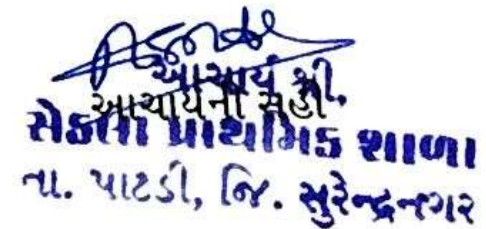 આચાર્ય શ્રી,
આચાર્યની સહી
સેડલા પ્રાથમિક શાળા
તા. પાટડી, જિ. સુરેન્દ્રનગર